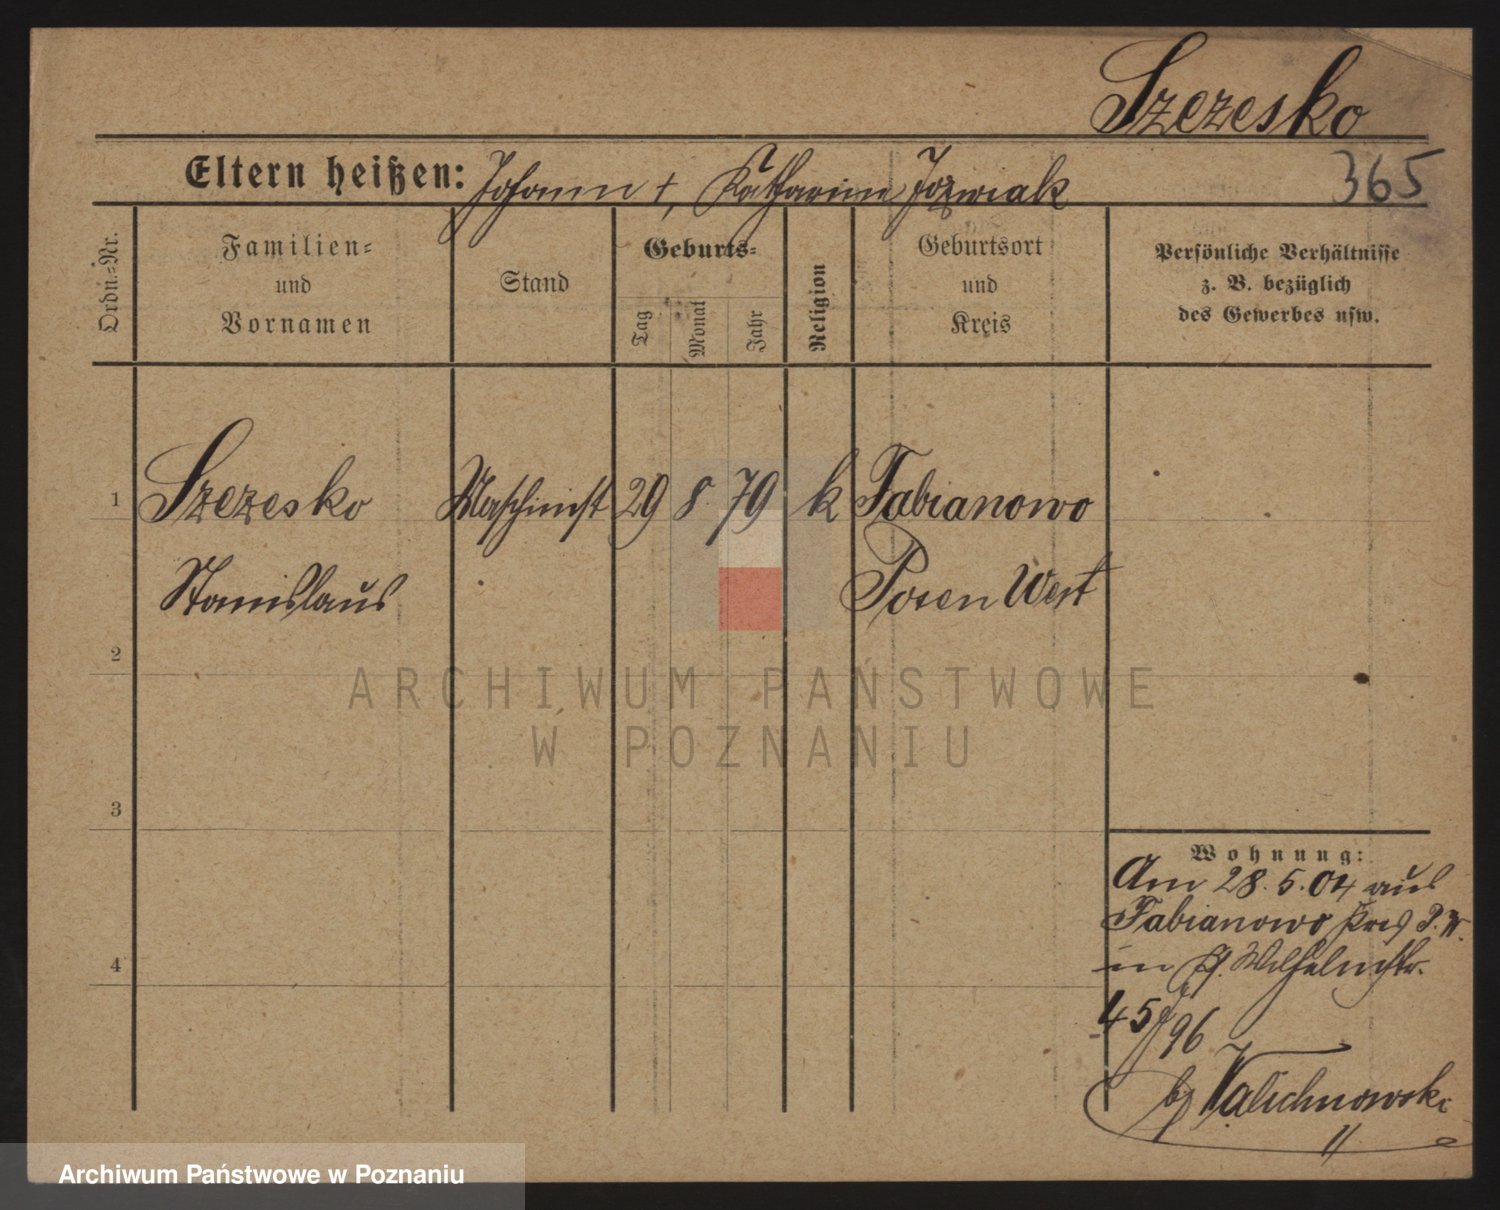 Szczesko
365
Eltern heißen: Johann †, Katharina Jozwiak
Ordn.-Nr.
Familien-
und
Vornamen
Stand
Geburts-
Tag
Monat
Jahr
Religion
Geburtsort
und
Kreis
Persönliche Verhältnisse
z. B. bezüglich
des Gewerbes usw.
1 Szczesko Maschinist 29 8. 79 k Fabianowo
Stanislaus Posen West
2
ARCHIWUM PAŃSTWOWE
W POZNANIU
3
4
Wohnung:
Am 28. 5. 04 aus
Fabianowo Kreis P. W.
in Wilhelmstr.
45/96
bei Walichnowski
Archiwum Państwowe w Poznaniu